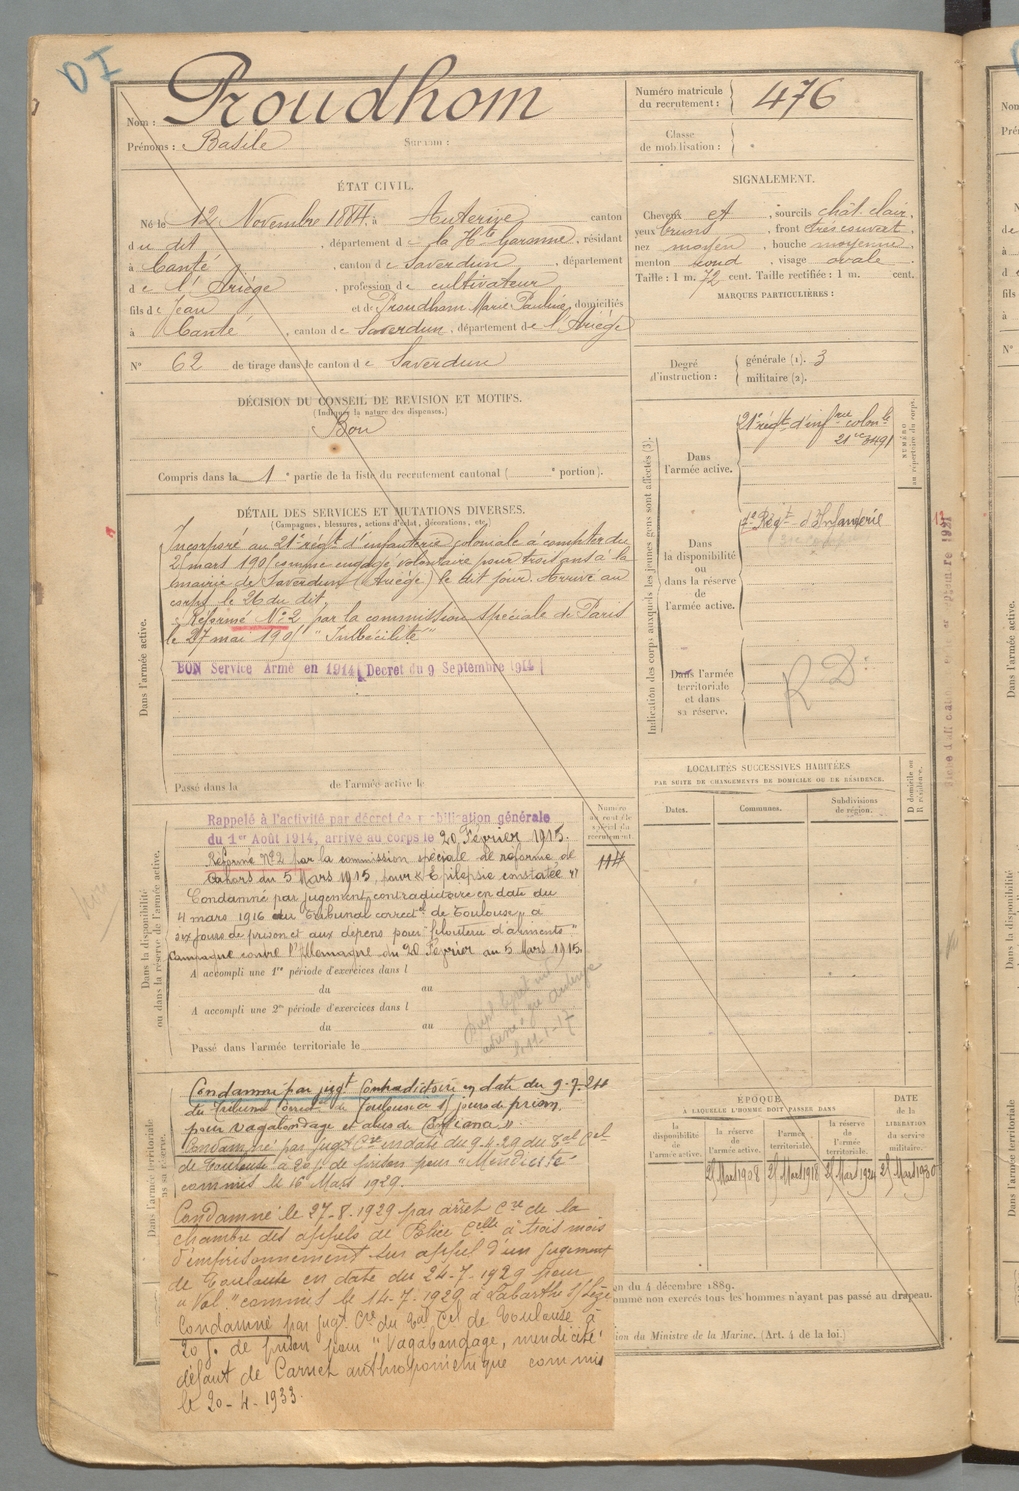 DI
Nom : Proudhom
Prénoms : Basile Surnom :
Numéro matricule du recrutement : 476
Classe de mobilisation :
ÉTAT CIVIL.
Né le 12 Novembre 1884, à Auterive canton
du dit, département de la Hte Garonne, résidant
à Canté, canton de Saverdun, département
de l'Ariège, profession de cultivateur
fils de Jean et de Proudhom Marie Pauline, domiciliés
à Canté, canton de Saverdun, département de l'Ariège
N° 62 de tirage dans le canton de Saverdun
SIGNALEMENT.
Cheveux et, sourcils chât. clair,
yeux bruns, front très couvert,
nez moyen, bouche moyenne,
menton rond, visage ovale.
Taille : 1 m. 72 cent. Taille rectifiée : 1 m. cent.
MARQUES PARTICULIÈRES :
Degré d'instruction : générale (1). 3
militaire (2).
DÉCISION DU CONSEIL DE REVISION ET MOTIFS.
(Indiquer la nature des dispenses.)
Bon
Compris dans la 1e partie de la liste du recrutement cantonal ( e portion).
DÉTAIL DES SERVICES ET MUTATIONS DIVERSES.
(Campagnes, blessures, actions d'éclat, décorations, etc.)
Dans l'armée active.
Incorporé au 21e régt d'infanterie coloniale à compter du
mars comme engagé volontaire pour trois ans à la
mairie de Saverdun (Ariège) le dit jour. Arrivé au
corps le 26 du dit.
Réformé N° 2 par la commission spéciale de Paris
le 27 mai "Imbécilité"
BON Service Armé en 1914 (Decret du 9 Septembre 1914)
Passé dans la de l'armée active le
Dans la disponibilité ou dans la réserve de l'armée active.
Rappelé à l'activité par décret de mobilisation générale
du 1er Août 1914, arrivé au corps le 20 Février 1915.
Réformé N°2 par la commission spéciale de réforme de
Cahors du 5 Mars 1915, pour "Epilepsie constatée"
Condamné par jugement contradictoire en date du
4 mars 1916 du Tribunal correctel de Toulouse, à
six jours de prison et aux dépens pour "filouterie d'aliments"
Campagne contre l'Allemagne du 20 Février au 5 Mars 1915.
A accompli une 1re période d'exercices dans l
du au
A accompli une 2e période d'exercices dans l
du au
Passé dans l'armée territoriale le
Numéro au contrôle spécial du recrutement.
114
Dans l'armée territoriale et dans sa réserve.
Condamné par jugt Contradictoire en date du 9-7-24
du Tribunal Correctel de Toulouse à jours de prison
pour vagabondage et abus de confiance.
Condamné par Jugt Cre en date du 9-4-29 du Tal Cel
de Toulouse à 20 j. de prison pour "Mendicité"
commis le 16 Mars 1929.
Condamné le 27-8-1929 par arrêt Cre de la
chambre des appels de Police Celle à trois mois
d'emprisonnement sur appel d'un jugement
de Toulouse en date du 24-7-1929 pour
"Vol" commis le 14-7-1929 à Labarthe s/ Lèze
Condamné par jugt Cre du Tal Cel de Toulouse à
20 j. de prison pour "Vagabondage, mendicité,
défaut de Carnet anthropométrique commis
le 20-4-1933.
Indication des corps auxquels les jeunes gens sont affectés (3).
NUMÉRO au répertoire du corps.
Dans l'armée active.
21e régt d'infrie colonle
Dans la disponibilité ou dans la réserve de l'armée active.
7e Régt d'Infanterie
Dans l'armée territoriale et dans sa réserve.
R D
LOCALITÉS SUCCESSIVES HABITÉES
PAR SUITE DE CHANGEMENTS DE DOMICILE OU DE RÉSIDENCE.
Dates. Communes. Subdivisions de région. D domicile ou R résidence.
ÉPOQUE
A LAQUELLE L'HOMME DOIT PASSER DANS
la disponibilité de l'armée active.
la réserve de l'armée active.
l'armée territoriale.
la réserve de l'armée territoriale.
DATE de la LIBÉRATION du service militaire.
Mars 1908 Mars 1918 Mars 1924 Mars 1930
on du 4 décembre 1889.
omme non exercés tous les hommes n'ayant pas passé au drapeau.
ion du Ministre de la Marine. (Art. 4 de la loi.)